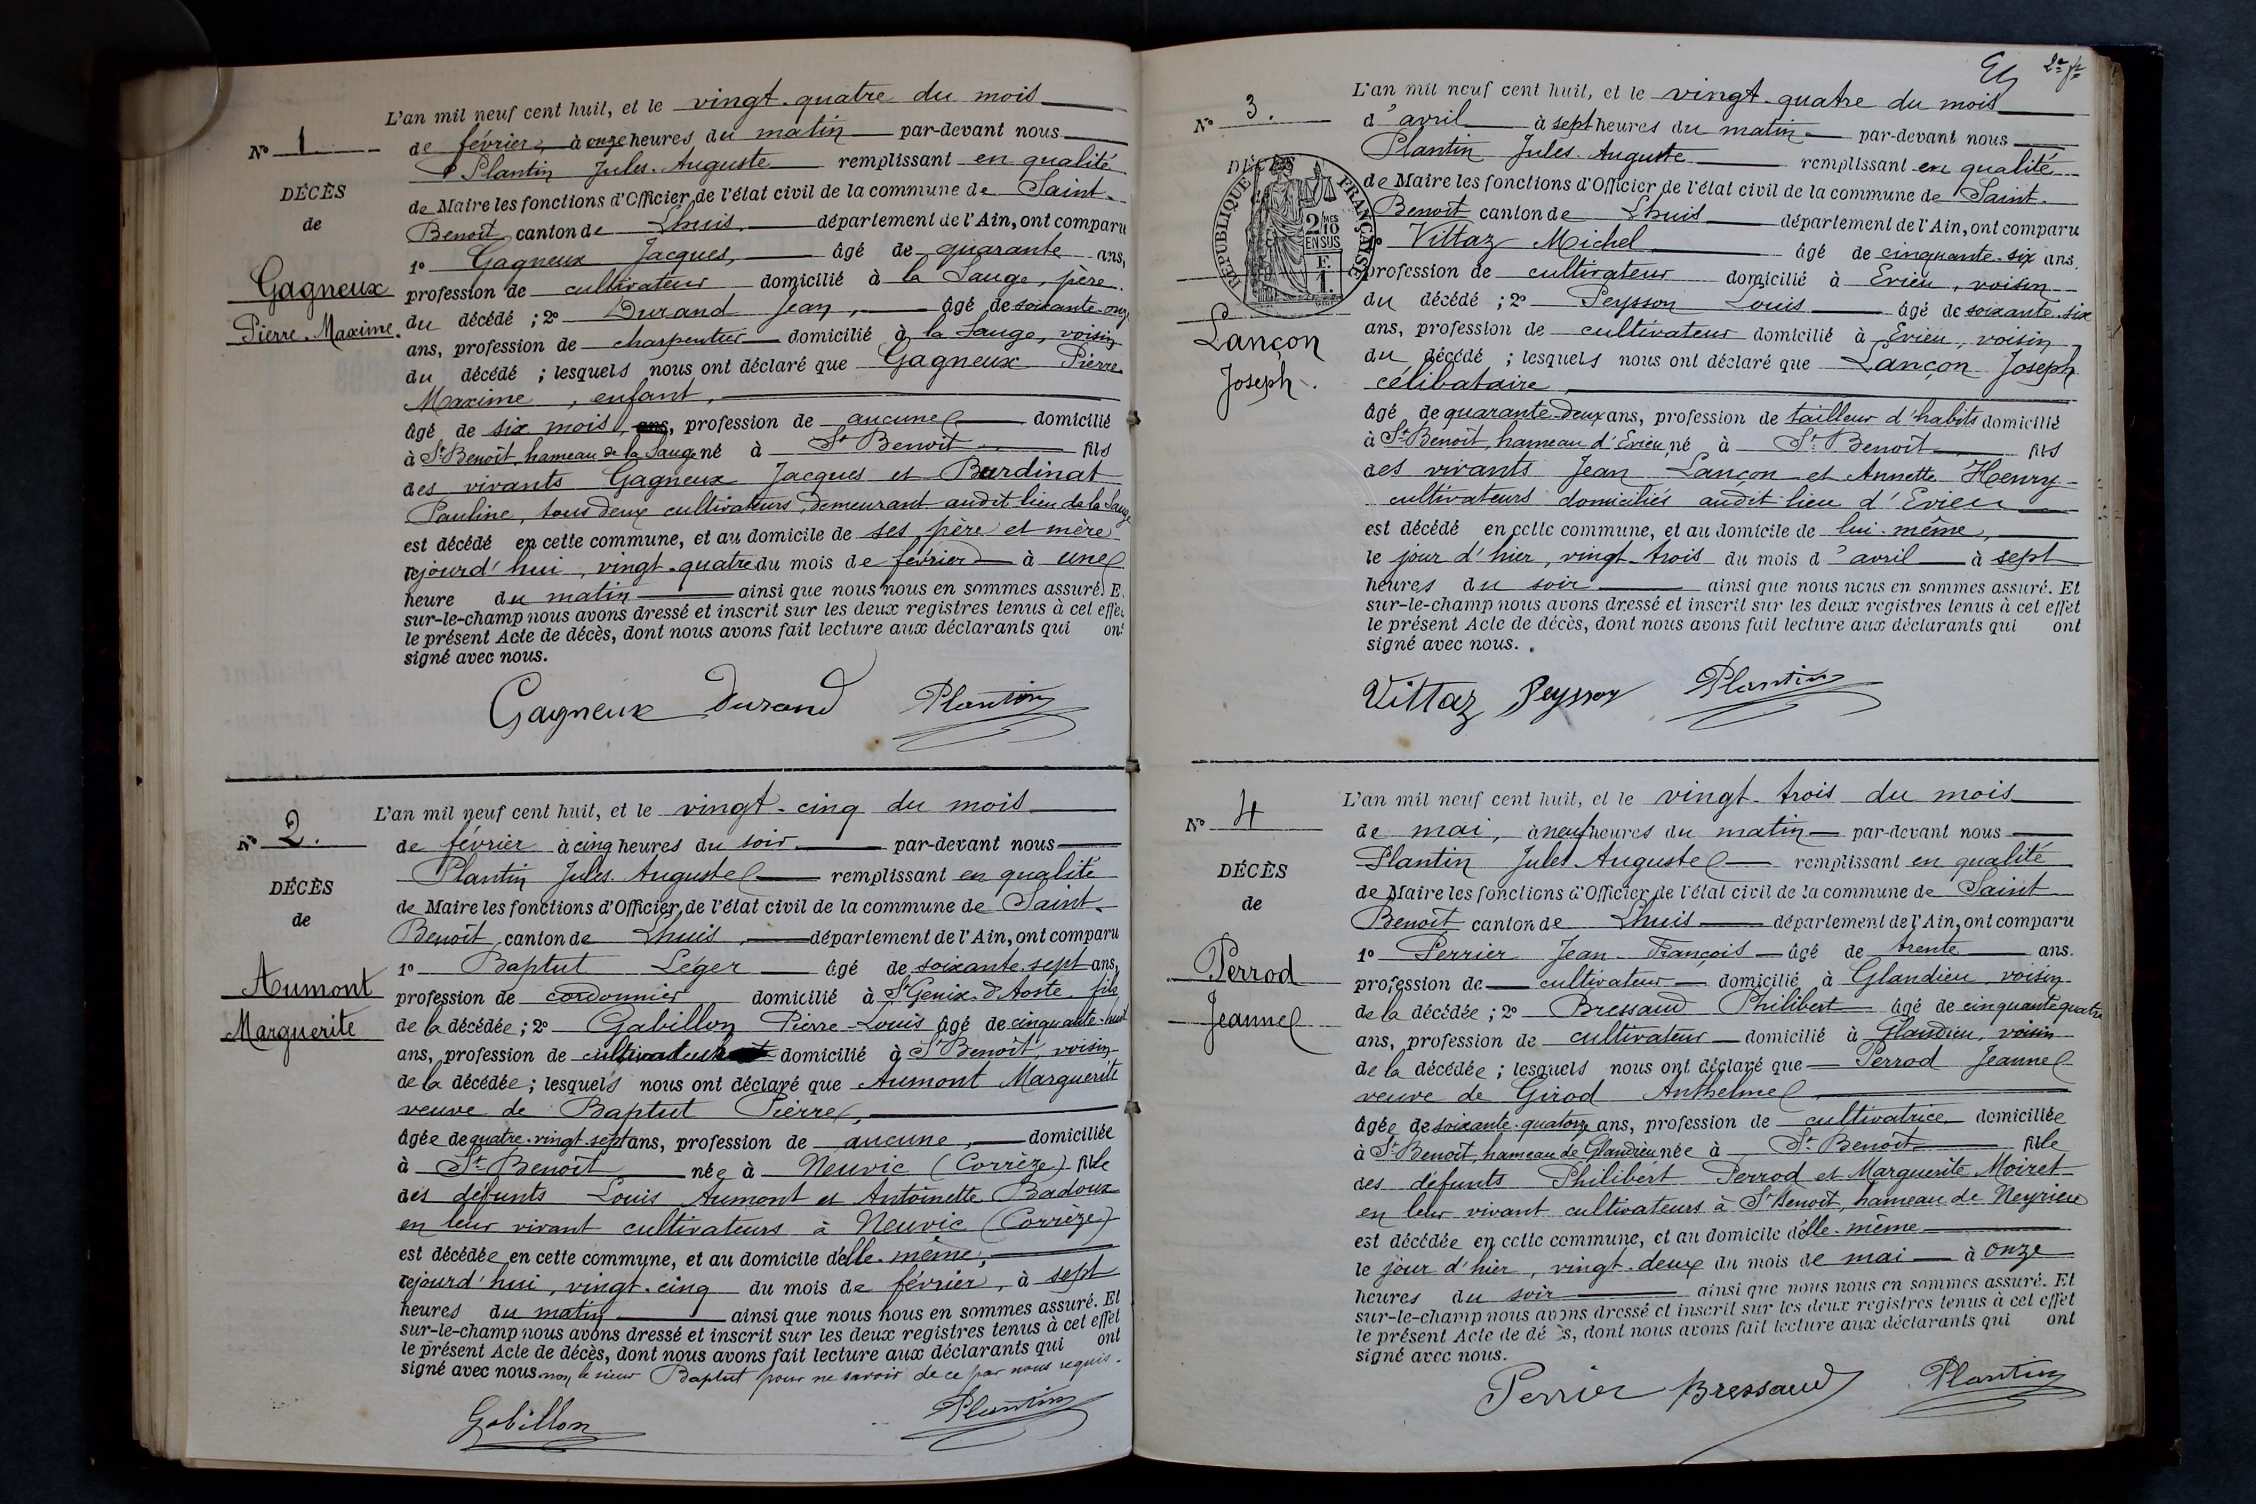 N° 1
DÉCÈS
de
Gagneux
Pierre-Maxime.
L'an mil neuf cent huit, et le vingt-quatre du mois
de février, à onze heures du matin par-devant nous
Plantin Jules-Auguste remplissant en qualité
de Maire les fonctions d'Officier de l'état civil de la commune de Saint-
Benoît canton de Lhuis département de l'Ain, ont comparu
1° Gagneux Jacques, âgé de quarante ans,
profession de cultivateur domicilié à la Sauge, père
du décédé ; 2° Durand Jean, âgé de soixante-onze
ans, profession de charpentier domicilié à la Sauge, voisin
du décédé ; lesquels nous ont déclaré que Gagneux Pierre
Maxime, enfant,
âgé de six mois, ans, profession de aucune domicilié
à St Benoît, hameau de la Sauge né à St Benoit fils
des vivants Gagneux Jacques et Burdinat
Pauline, tous deux cultivateurs, demeurant audit lieu de la Sauge
est décédé en cette commune, et au domicile de ses père et mère
cejourd'hui, vingt-quatre du mois de février à une
heure du matin ainsi que nous nous en sommes assuré. E
sur-le-champ nous avons dressé et inscrit sur les deux registres tenus à cet effet
le présent Acte de décès, dont nous avons fait lecture aux déclarants qui ont
signé avec nous.
Gagneux Durand Plantin
N° 2.
DÉCÈS
de
Aumont
Marguerite
L'an mil neuf cent huit, et le vingt-cinq du mois
de février à cinq heures du soir par-devant nous
Plantin Jules-Auguste remplissant en qualité
de Maire les fonctions d'Officier de l'état civil de la commune de Saint-
Benoît, canton de Lhuis, département de l'Ain, ont comparu
1° Baptut Léger âgé de soixante-sept ans,
profession de cordonnier domicilié à St Genix-d'Aoste fils
de la décédée ; 2° Gabillon Pierre-Louis âgé de cinquante-huit
ans, profession de cultivateur domicilié à St Benoît, voisin
de la décédée ; lesquels nous ont déclaré que Aumont Marguerite
veuve de Baptut Pierre,
âgée de quatre-vingt-sept ans, profession de aucune, domiciliée
à St Benoît née à Neuvic (Corrèze) fille
des défunts Louis Aumont et Antoinette Badoux
en leur vivant cultivateurs à Neuvic (Corrèze)
est décédée en cette commune, et au domicile d'elle-même,
cejourd'hui, vingt-cinq du mois de février, à sept
heures du matin ainsi que nous nous en sommes assuré. Et
sur-le-champ nous avons dressé et inscrit sur les deux registres tenus à cet effet
le présent Acte de décès, dont nous avons fait lecture aux déclarants qui ont
signé avec nous, non le sieur Baptut pour ne savoir de ce par nous requis.
Gabillon Plantin
2e
N° 3.
DÉCÈS
RÉPUBLIQUE FRANÇAISE
2 MES
10
EN SUS
F.
1.
Lançon
Joseph.
L'an mil neuf cent huit, et le vingt-quatre du mois
d'avril à sept heures du matin par-devant nous
Plantin Jules-Auguste remplissant en qualité
de Maire les fonctions d'Officier de l'état civil de la commune de Saint-
Benoît canton de Lhuis département de l'Ain, ont comparu
Vittaz Michel âgé de cinquante-six ans,
profession de cultivateur domicilié à Evieu, voisin
du décédé ; 2° Peysson Louis âgé de soixante-six
ans, profession de cultivateur domicilié à Evieu, voisin
du décédé ; lesquels nous ont déclaré que Lançon Joseph
célibataire
âgé de quarante-deux ans, profession de tailleur d'habits domicilié
à St Benoît, hameau d'Evieu, né à St Benoît fils
des vivants Jean Lançon et Annette Henry
cultivateurs domiciliés audit lieu d'Evieu
est décédé en cette commune, et au domicile de lui-même,
le jour d'hier, vingt-trois du mois d'avril à sept
heures du soir ainsi que nous nous en sommes assuré. Et
sur-le-champ nous avons dressé et inscrit sur les deux registres tenus à cet effet
le présent Acte de décès, dont nous avons fait lecture aux déclarants qui ont
signé avec nous.
Vittaz Peysson Plantin
N° 4
DÉCÈS
de
Perrod
Jeanne
L'an mil neuf cent huit, et le vingt-trois du mois
de mai, à neuf heures du matin par-devant nous
Plantin Jules Auguste remplissant en qualité
de Maire les fonctions d'Officier de l'état civil de la commune de Saint
Benoît canton de Lhuis département de l'Ain, ont comparu
1° Perrier Jean-François âgé de trente ans.
profession de cultivateur domicilié à Glandieu voisin
de la décédée ; 2° Bressaud Philibert âgé de cinquante quatre
ans, profession de cultivateur domicilié à Glandieu, voisin
de la décédée ; lesquels nous ont déclaré que Perrod Jeanne
veuve de Girod Anthelme
âgée de soixante-quatorze ans, profession de cultivatrice domiciliée
à St Benoît, hameau de Glandieu née à St Benoît fille
des défunts Philibert Perrod et Marguerite Moiret
en leur vivant cultivateurs à St Benoît, hameau de Neyrieu
est décédée en cette commune, et au domicile d'elle-même
le jour d'hier, vingt-deux du mois de mai à onze
heures du soir ainsi que nous nous en sommes assuré. Et
sur-le-champ nous avons dressé et inscrit sur les deux registres tenus à cet effet
le présent Acte de décès, dont nous avons fait lecture aux déclarants qui ont
signé avec nous.
Perrier Bressaud Plantin